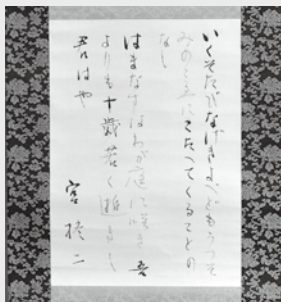 いくそたびなげきよべどもうつそ
みのこゑにこたつてくることの
なし
はまなすはわが庭に咲き吾
よりも十歳若く逝きし
君はや
宮柊二